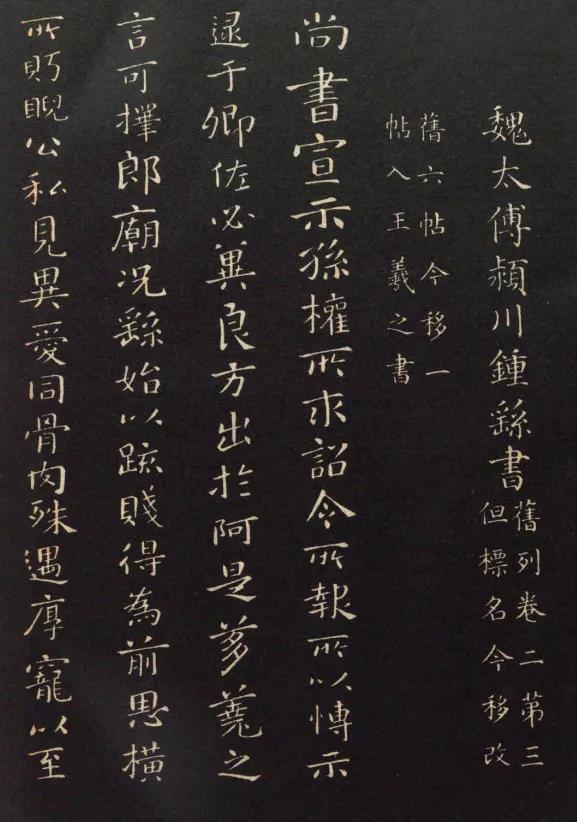 魏太傅潁川鍾繇書
舊列卷二第三
但標名今移改
舊六帖今移一
帖入王羲之書
尚書宣示孫權所求詔令所報所以博示
逮于卿佐必冀良方出於阿是芻蕘之
言可擇郎廟況繇始以疏賤得為前恩橫
所眄睨公私見異愛同骨肉殊遇厚寵以至